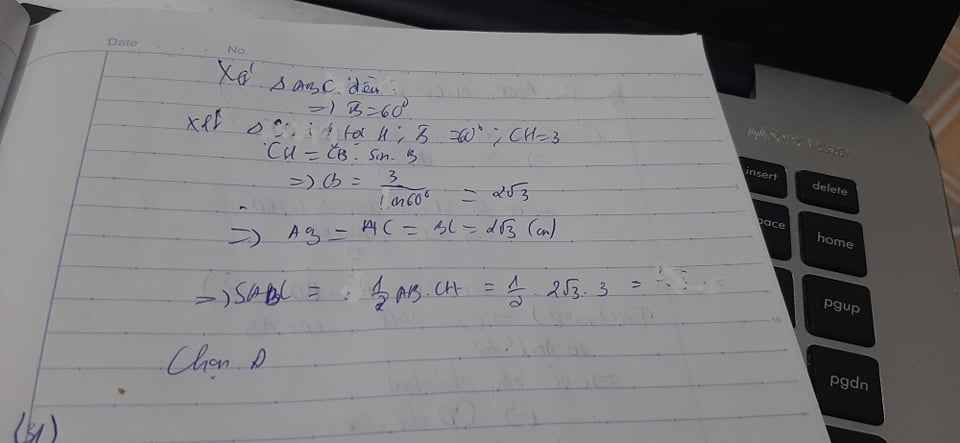 Date No
Xét Δ ABC đều:
=> B = 60°
Xét Δ tại H; B = 60°; CH=3
CH = CB. sin. B
=> CB = 3 / sin60° = 2√3
=> AB = AC = BC = 2√3 (cm)
=> SABC = 1/2 AB.CH = 1/2 . 2√3 . 3 =
Chọn D
insert delete
home
pgup
pgdn